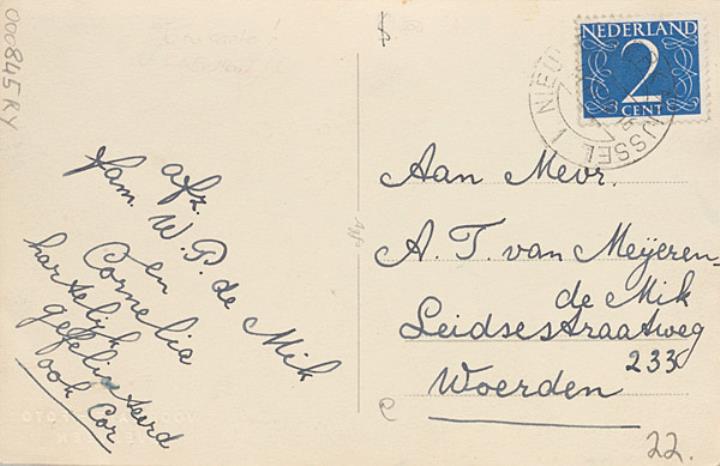 000845RY
afz.
fam. W. P. de Mik
en
Cornelia
hartelijk
gefeliciteerd
ook Cor
NEDERLAND
2
CENT
Aan Mevr.
A. T. van Meijeren-
de Mik
Leidsestraatweg
233
Woerden
22.